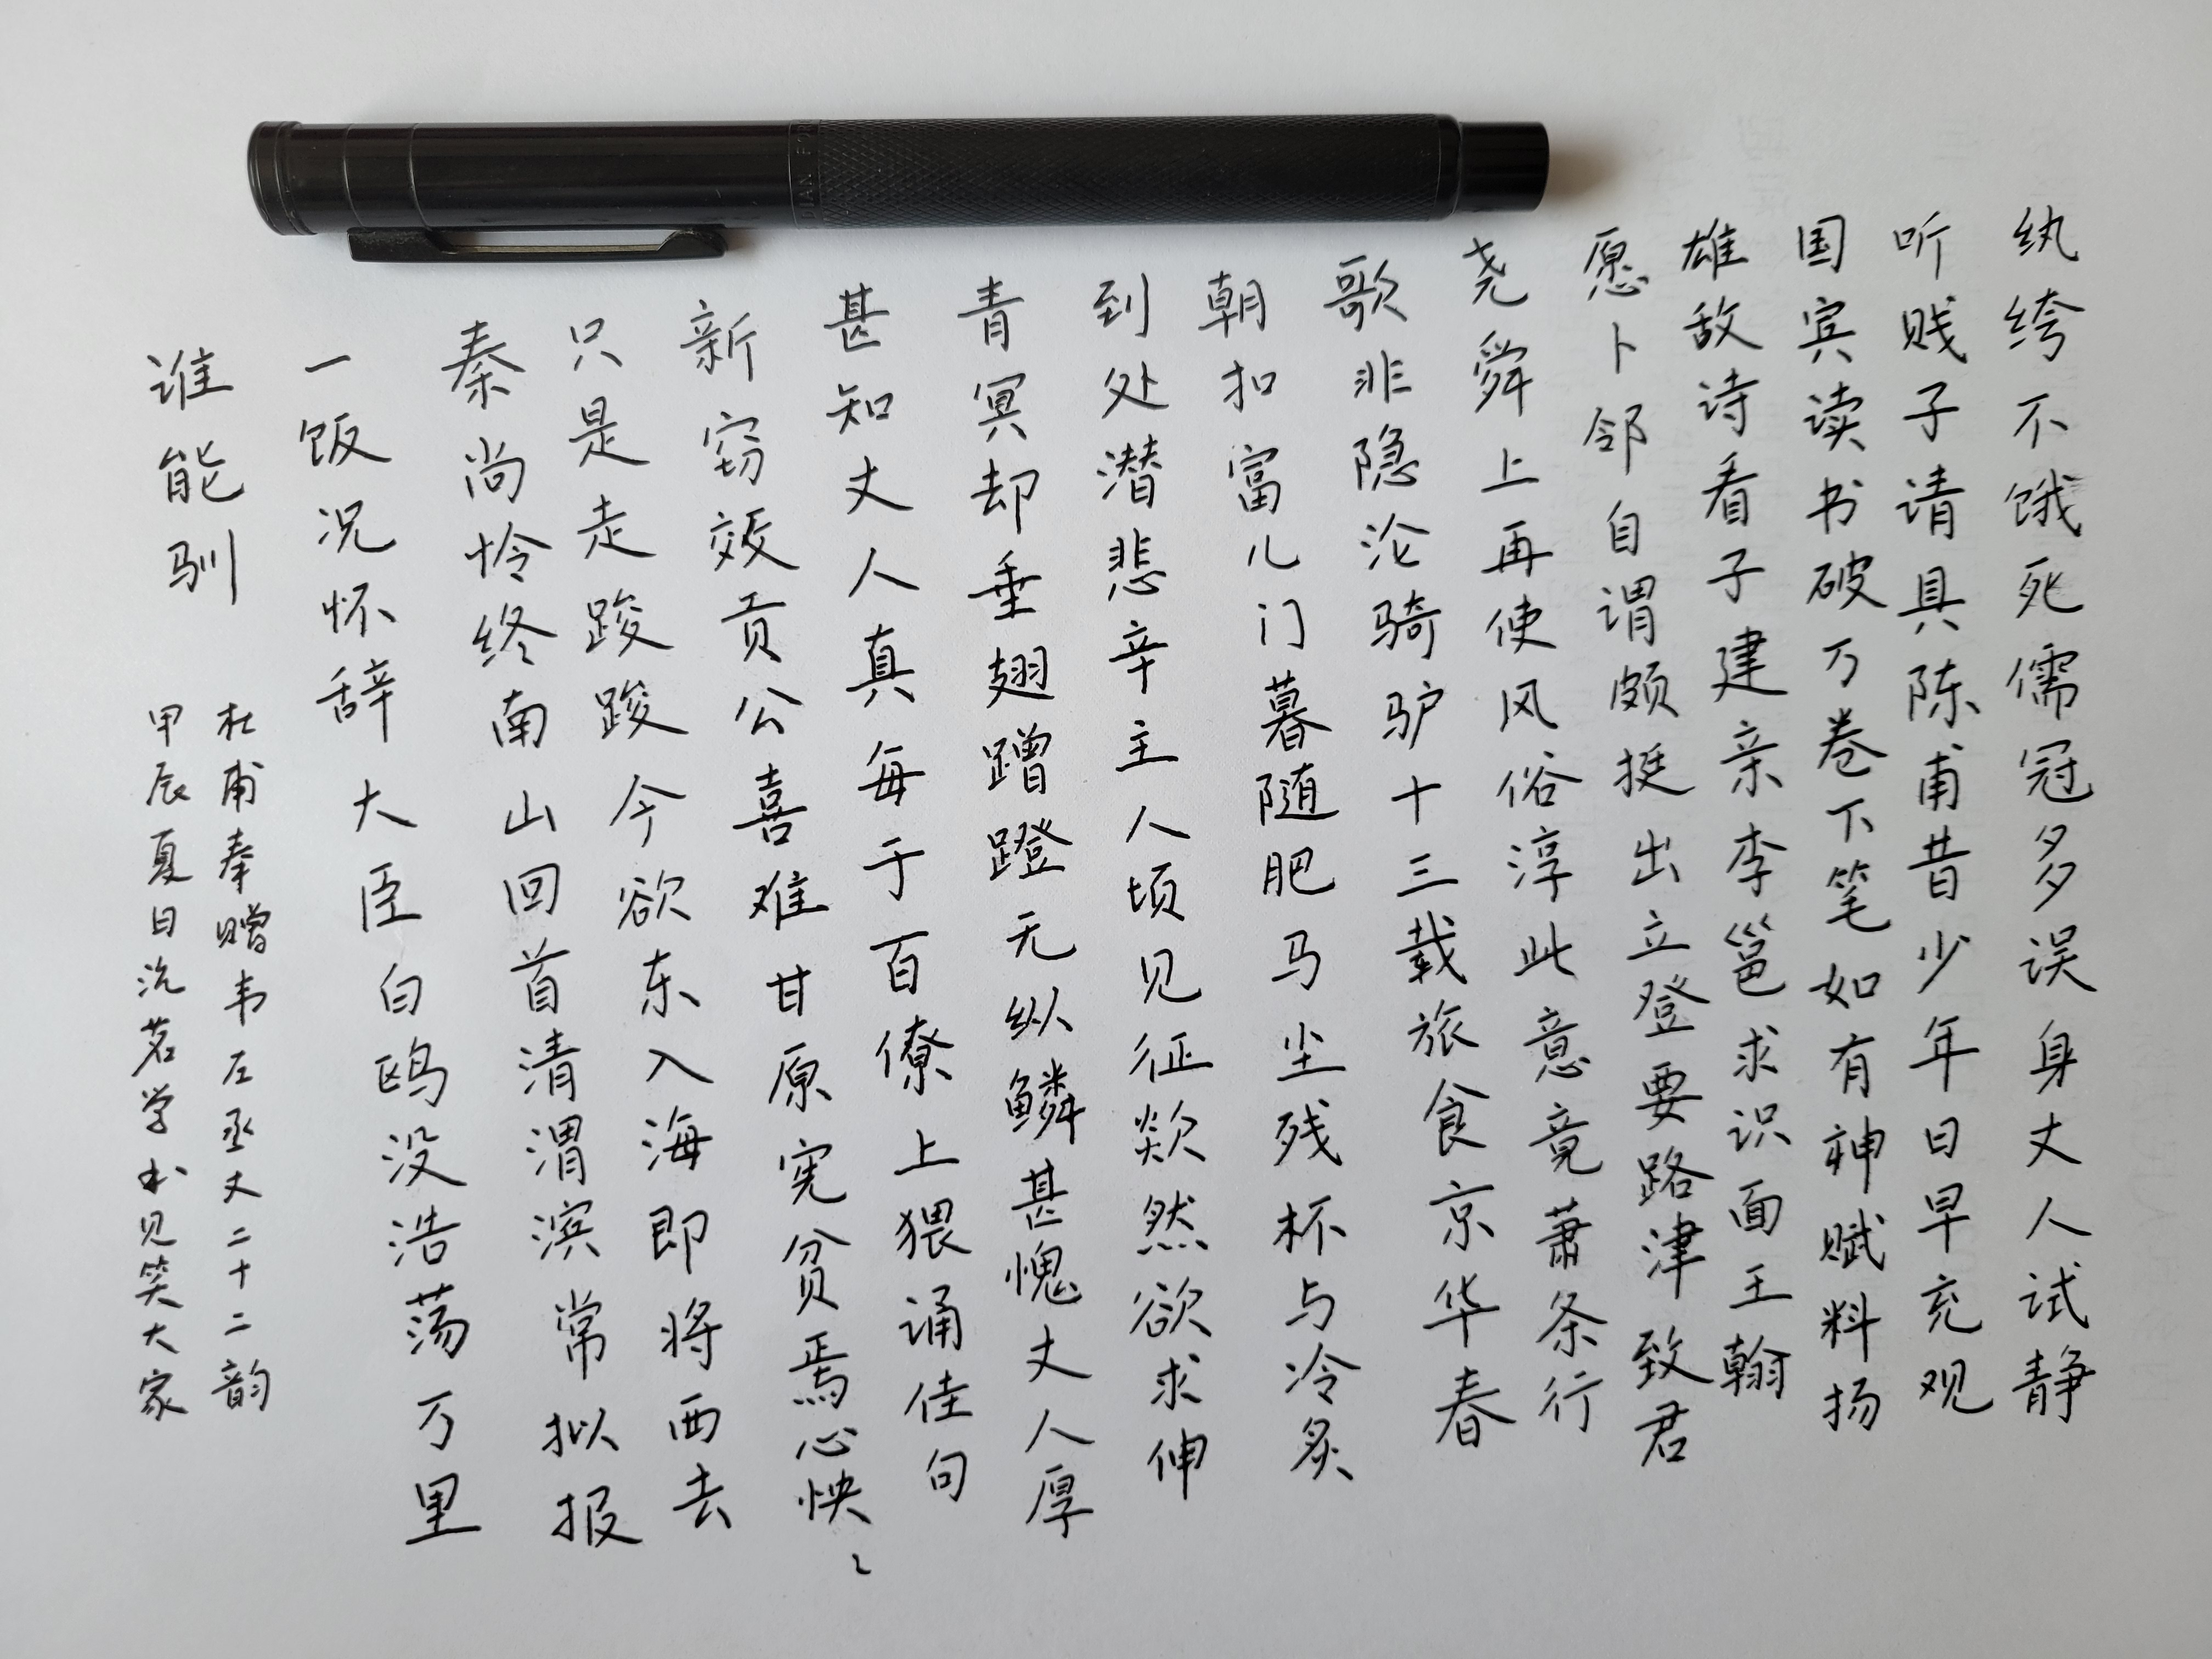 纨绔不饿死儒冠多误身丈人试静
听贱子请具陈甫昔少年日早充观
国宾读书破万卷下笔如有神赋料扬
雄敌诗看子建亲李邕求识面王翰
愿卜邻自谓颇挺出立登要路津致君
尧舜上再使风俗淳此意竟萧条行
歌非隐沦骑驴十三载旅食京华春
朝扣富儿门暮随肥马尘残杯与冷炙
到处潜悲辛主人顷见征欻然欲求伸
青冥却垂翅蹭蹬无纵鳞甚愧丈人厚
甚知丈人真每于百僚上猥诵佳句
新窃效贡公喜难甘原宪贫焉心怏〻
只是走踆踆今欲东入海即将西去
秦尚怜终南山回首清渭滨常拟报
一饭况怀辞大臣白鸥没浩荡万里
谁能驯
杜甫奉赠韦左丞丈二十二韵
甲辰夏日沈茗学书见笑大家